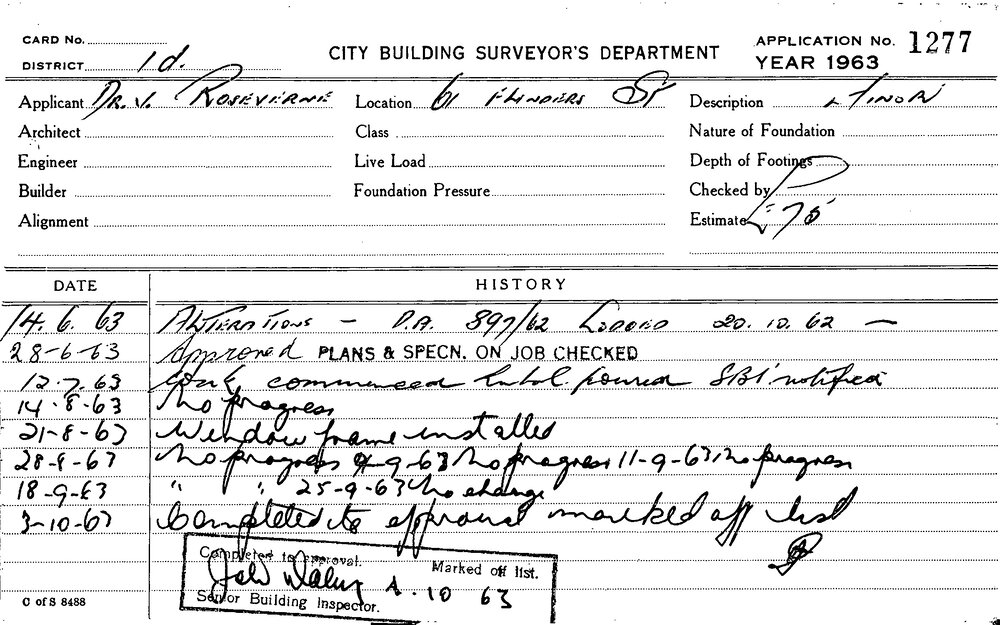 CARD No.
CITY BUILDING SURVEYOR'S DEPARTMENT
APPLICATION No. 1277
DISTRICT 1d.
YEAR 1963
Applicant Dr. V. ROSEVERNE Location 61 FLINDERS ST Description MINOR
Architect Class Nature of Foundation
Engineer Live Load Depth of Footings
Builder Foundation Pressure Checked by
Alignment Estimate £75
DATE HISTORY
14. 6. 63 ALTERATIONS — D.A. 897/62 LODGED 20. 10. 62 —
28-6-63 Approved PLANS & SPECN. ON JOB CHECKED
12.7.63 Work commenced Lintol poured SBI notified
14-8-63 No progress
21-8-63 Window frame installed
28-8-63 No progress 4-9-63 No progress 11-9-63 No progress
18-9-63 " " 25-9-63 No change
3-10-63 Completed to approval marked off list
Completed to approval. Marked off list.
4. 10 63
Senior Building Inspector.
C of S 8488